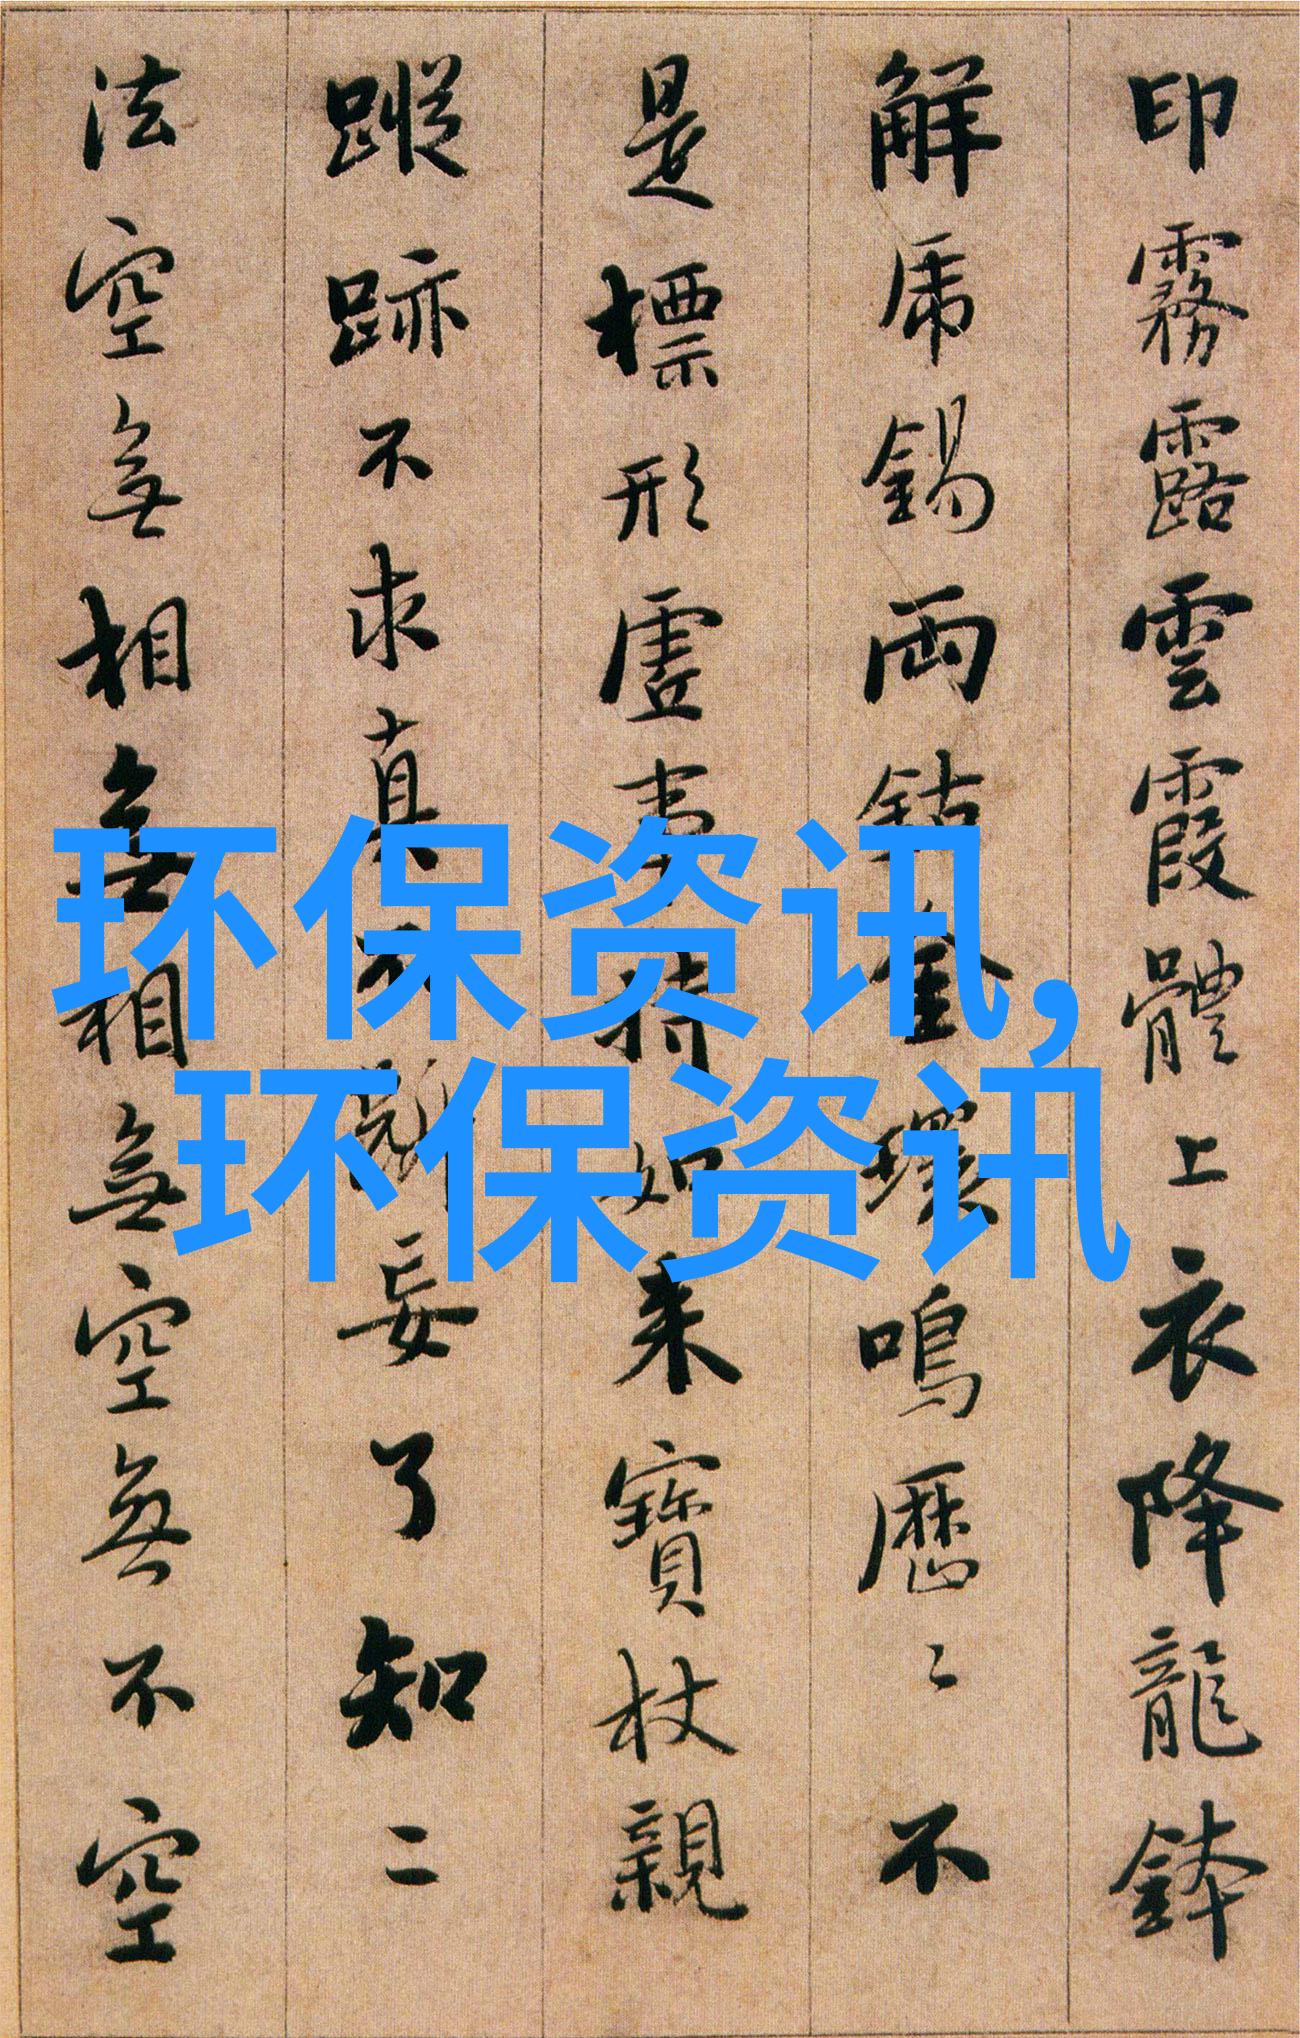 印霧露雲霞體上衣降龍鉢
解虎錫兩鈷金環鳴歷〻不
是標形虛事持如來寶杖親
蹤跡不求真不斷妄了知二
法空無相無相無空無不空
环保资讯,
环保资讯